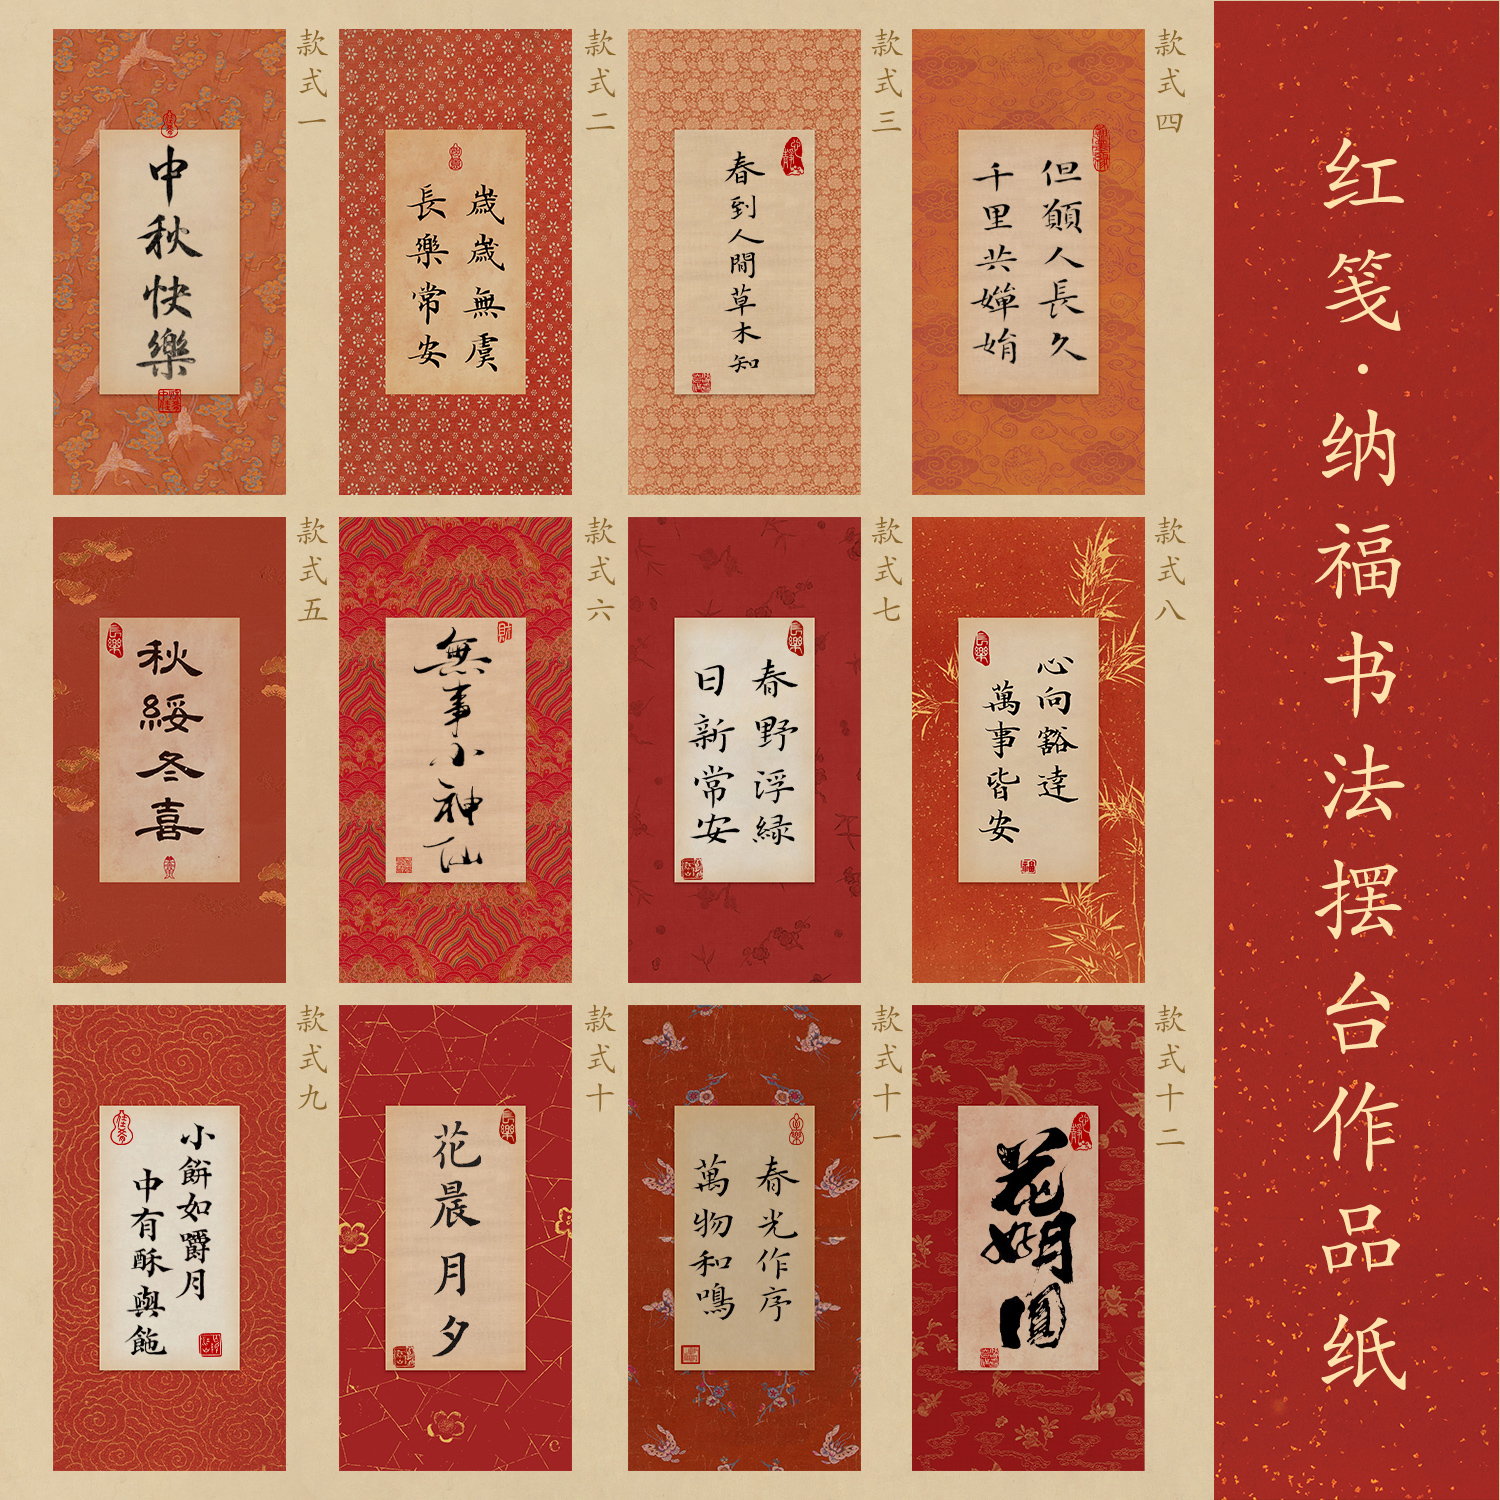 红笺·纳福书法摆台作品纸
款式一
中秋快樂
款式二
歲歲無虞
長樂常安
款式三
春到人間草木知
款式四
但願人長久
千里共嬋娟
款式五
秋綏冬喜
款式六
無事小神仙
款式七
春野浮緑
日新常安
款式八
心向豁達
萬事皆安
款式九
小餅如嚼月
中有酥與飴
款式十
花晨月夕
款式十一
春光作序
萬物和鳴
款式十二
花好月圓